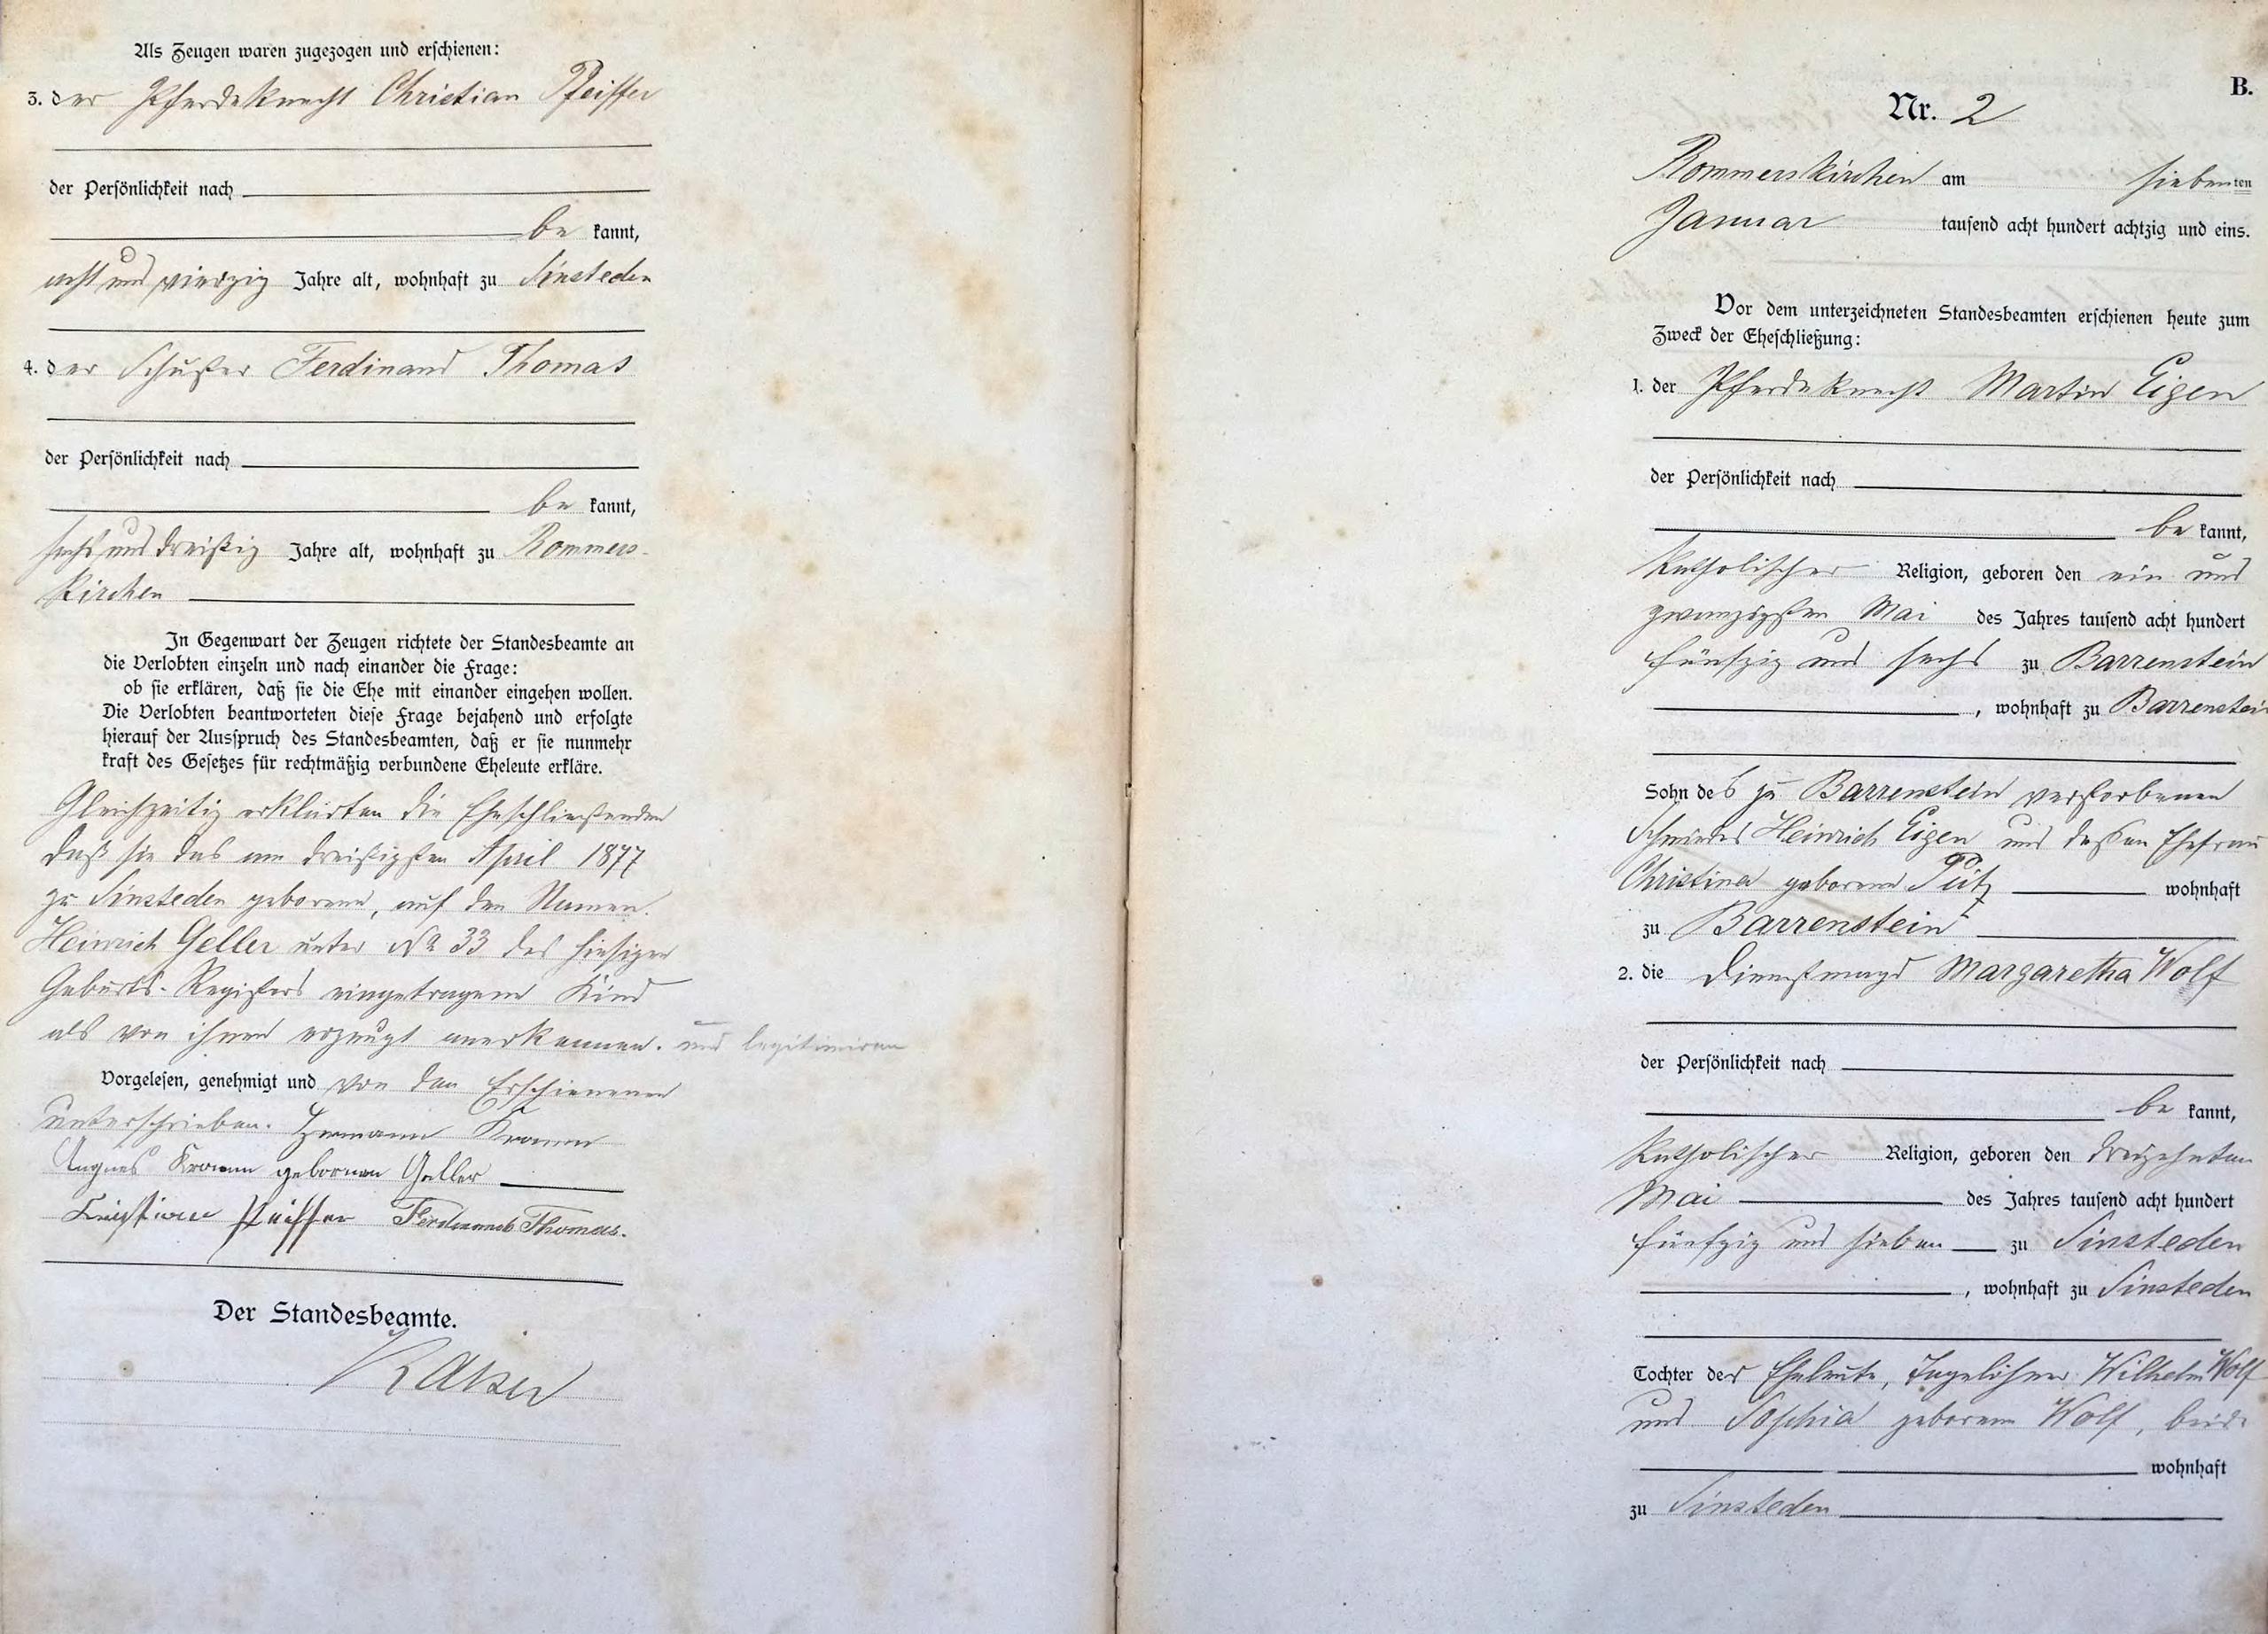 Als Zeugen waren zugezogen und erschienen:
3. der Pferdeknecht Christian Pfeiffer
der Persönlichkeit nach
be kannt,
acht und vierzig Jahre alt, wohnhaft zu Sinsteden
4. der Schuster Ferdinand Thomas
der Persönlichkeit nach
be kannt,
sechs und dreißig Jahre alt, wohnhaft zu Rommers-
kirchen
In Gegenwart der Zeugen richtete der Standesbeamte an
die Verlobten einzeln und nach einander die Frage:
ob sie erklären, daß sie die Ehe mit einander eingehen wollen.
Die Verlobten beantworteten diese Frage bejahend und erfolgte
hierauf der Ausspruch des Standesbeamten, daß er sie nunmehr
kraft des Gesetzes für rechtmäßig verbundene Eheleute erkläre.
Gleichzeitig erklärten die Eheschließenden
daß sie das am dreißigsten April 1877
zu Sinsteden geborene, auf den Namen
Heinrich Geller unter No 33 des hiesigen
Geburts-Registers eingetragene Kind
als von ihnen erzeugt anerkennen. und legitimiren
Vorgelesen, genehmigt und von den Erschienenen
unterschrieben. Hermann
Agnes geborenen Geller
Christian Pfeiffer Ferdinand Thomas.
Der Standesbeamte.
B.
Nr. 2
Rommerskirchen am siebenten
Januar tausend acht hundert achtzig und eins.
Vor dem unterzeichneten Standesbeamten erschienen heute zum
Zweck der Eheschließung:
1. der Pferdeknecht Martin Eigen
der Persönlichkeit nach
be kannt,
katholischer Religion, geboren den ein und
zwanzigsten Mai des Jahres tausend acht hundert
fünfzig und sechs zu Barrenstein
, wohnhaft zu Barrenstein
Sohn des zu Barrenstein verstorbenen
Schmiedes Heinrich Eigen und dessen Ehefrau
Christina geborene Pütz wohnhaft
zu Barrenstein
2. die Dienstmagd Margaretha Wolf
der Persönlichkeit nach
be kannt,
katholischer Religion, geboren den dreizehnten
Mai des Jahres tausend acht hundert
fünfzig und sieben zu Sinsteden
, wohnhaft zu Sinsteden
Tochter der Eheleute, Tagelöhner Wilhelm Wolf
und Sophia geborene Wolf, beide
wohnhaft
zu Sinsteden